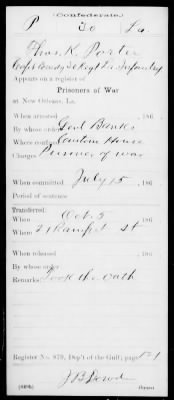 (Confederate.)
P 30 La
Thos. K. Porter
Corpl Co 30 Regt La Infantry
Appears on a register of
Prisoners of War
at New Orleans, La.
When arrested , 186
By whose order Genl Banks
Where confined Customs House
Charges Prisoner of war
When committed July 15 , 186
Period of sentence
Transferred:
When Oct 5 , 186
Where 21 Rampart St
When released , 186
By whose order
Remarks: Took the oath
Register No. 879, Dep't of the Gulf; page 121
(639b) Copyist.